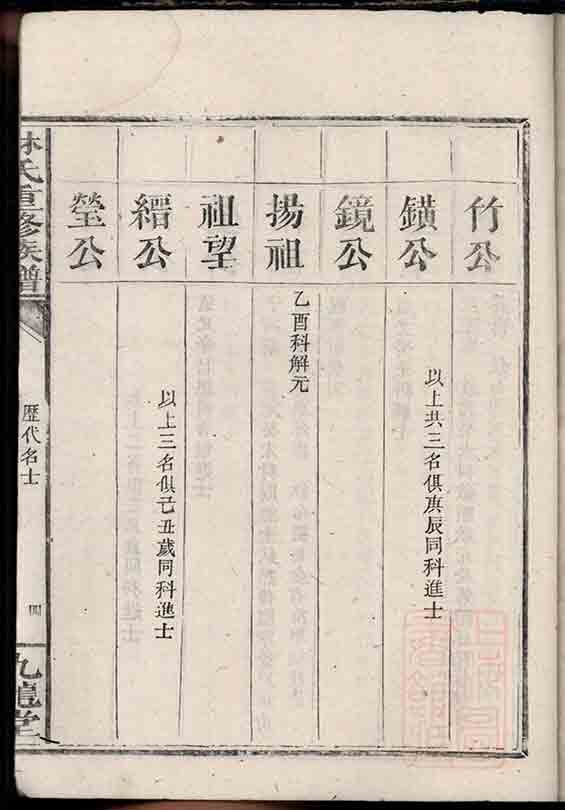 竹公
鐄公
以上共三名俱庚辰同科進士
鏡公
揚祖
乙酉科解元
祖望
縉公
以上三名俱己丑歲同科進士
瑩公
林氏重修族譜
歷代名士
四
九龍堂